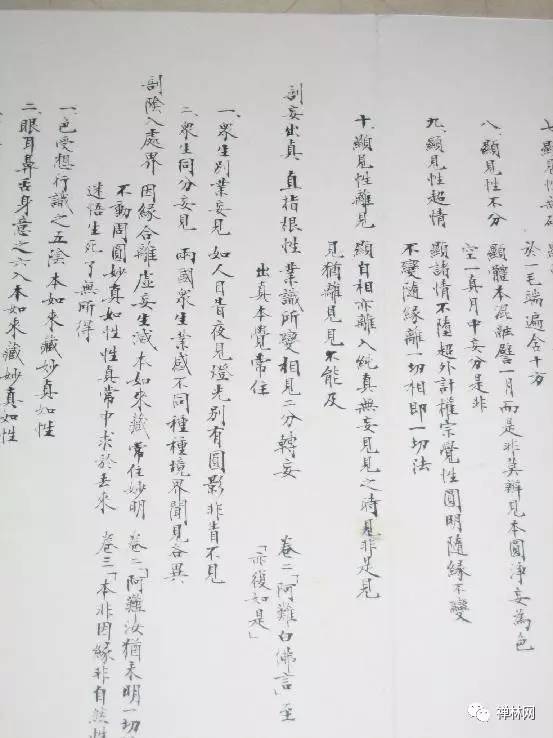 七、顯見性無礙
於一毛端遍含十方
八、顯見性不分
顯體本混融譬一月而是非莫辨見本圓淨妄為色
空一真月中妄分是非
九、顯見性超情
顯諸情不墮超外計權宗覺性圓明隨緣不變
不變隨緣離一切相即一切法
十、顯見性離見
顯自相亦離入純真無妄見見之時見非是見
見猶離見見不能及
剖妄出真
直指根性
業識所變相見二分轉妄
出真本覺常住
卷二「阿難白佛言」至
「亦復如是」
一、眾生別業妄見
如人目眚夜見燈光別有圓影非眚不見
二、眾生同分妄見
兩國眾生業感不同種種境界聞見各異
剖陰入處界
因緣合離虛妄生滅本如來藏常住妙明
不動周圓妙真如性性真常中求於去來
迷悟生死了無所得
卷二「阿難汝猶未明一切
卷三「本非因緣非自然性
一、色受想行識之五陰本如來藏妙真如性
二、眼耳鼻舌身意之六入本如來藏妙真如性
禅林网